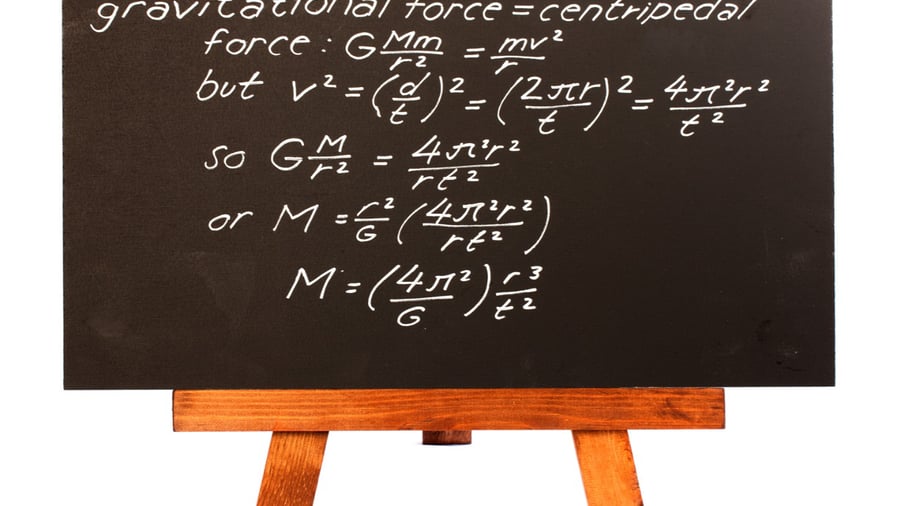 gravitational force = centripedal
force : G Mm/r² = mv²/r
but v² = (d/t)² = (2πr/t)² = 4π²r²/t²
so G M/r² = 4π²r²/rt²
or M = r²/G (4π²r²/rt²)
M = (4π²/G) r³/t²